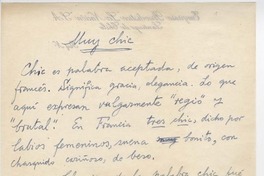 Muy chic
Chic es palabra aceptada, de origen
francés. Significa gracia, elegancia. Lo que
aquí expresan vulgarmente "regio" y
"brutal". En Francia tres chic, dicho por
labios femeninos, suena bonito, con
chasquido cariñoso, de beso.
la palabra chic, fué